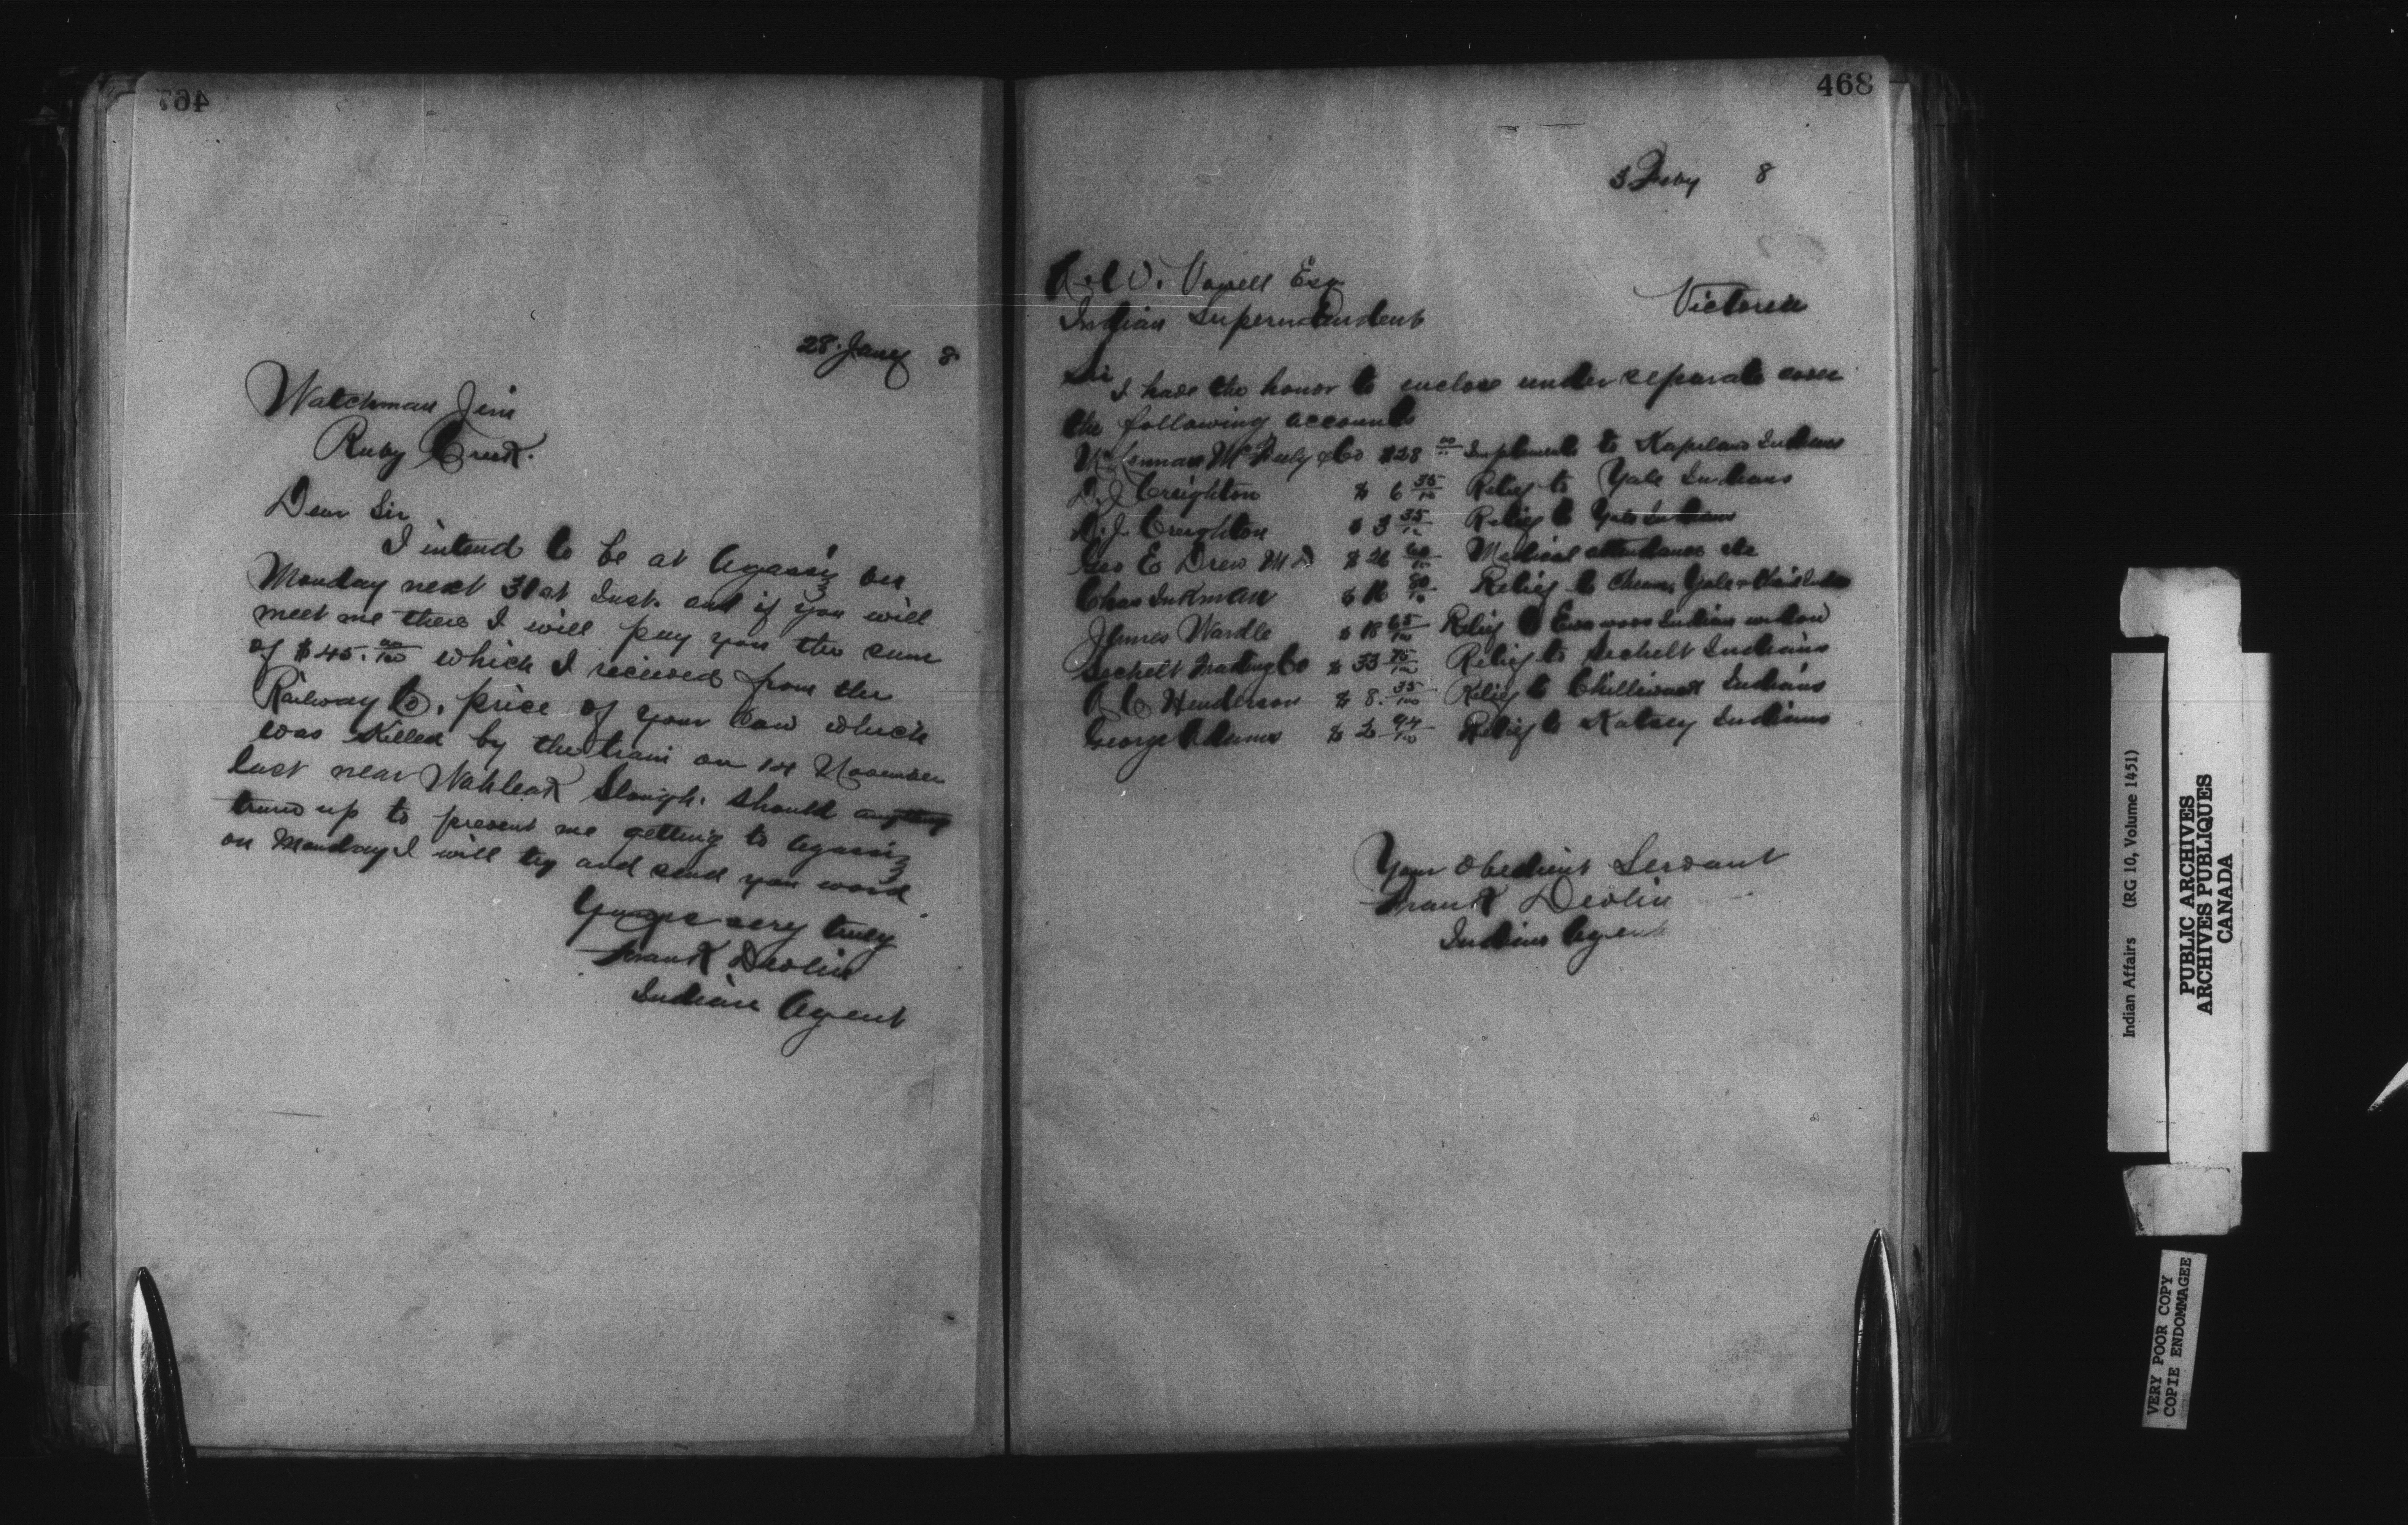 467
28 Jany 8
Watchman Jim
Ruby Creek.
Dear Sir
I intend to be at Agassiz on
Monday next 31st Inst. and if you will
meet me there I will pay you the sum
of $45.00/100 which I recieved from the
Railway Co. price of your Cow which
was Killed by the train on 14 November
last near Wahleak Slough. Should anything
turn up to prevent me getting to Agassiz
on Monday I will try and send you word
Yours very truly
Frank Devlin
Indian Agent
468
3 Feby 8
A. W. Vowell Esq
Indian Superintendent
Victoria
Sir
I have the honor to enclose under separate cover
the following accounts
McLennan McFeely & Co $28 00 Implements to Kapilano Indians
D. J. Creighton $ 6 35/100 Relief to Yale Indians
D. J. Creighton $ 3 35/100 Relief to Yale Indians
Geo E Drew M D $ 26 60/100 Medical attendance etc
Chas Inkman $ 80/100 Relief to Cheam, Yale &
James Wardle $ 18 65/100 Relief to Indian widow
Sechelt Trading Co $ 33 75/100 Relief to Sechelt Indians
A C Henderson $ 8. 35/100 Relief to Chilliwack Indians
George Adams $ 2 94/100 Relief to Katsey Indians
Your Obedient Servant
Frank Devlin
Indian Agent
Indian Affairs (RG 10, Volume 1451)
PUBLIC ARCHIVES
ARCHIVES PUBLIQUES
CANADA
VERY POOR COPY
COPIE ENDOMMAGEE